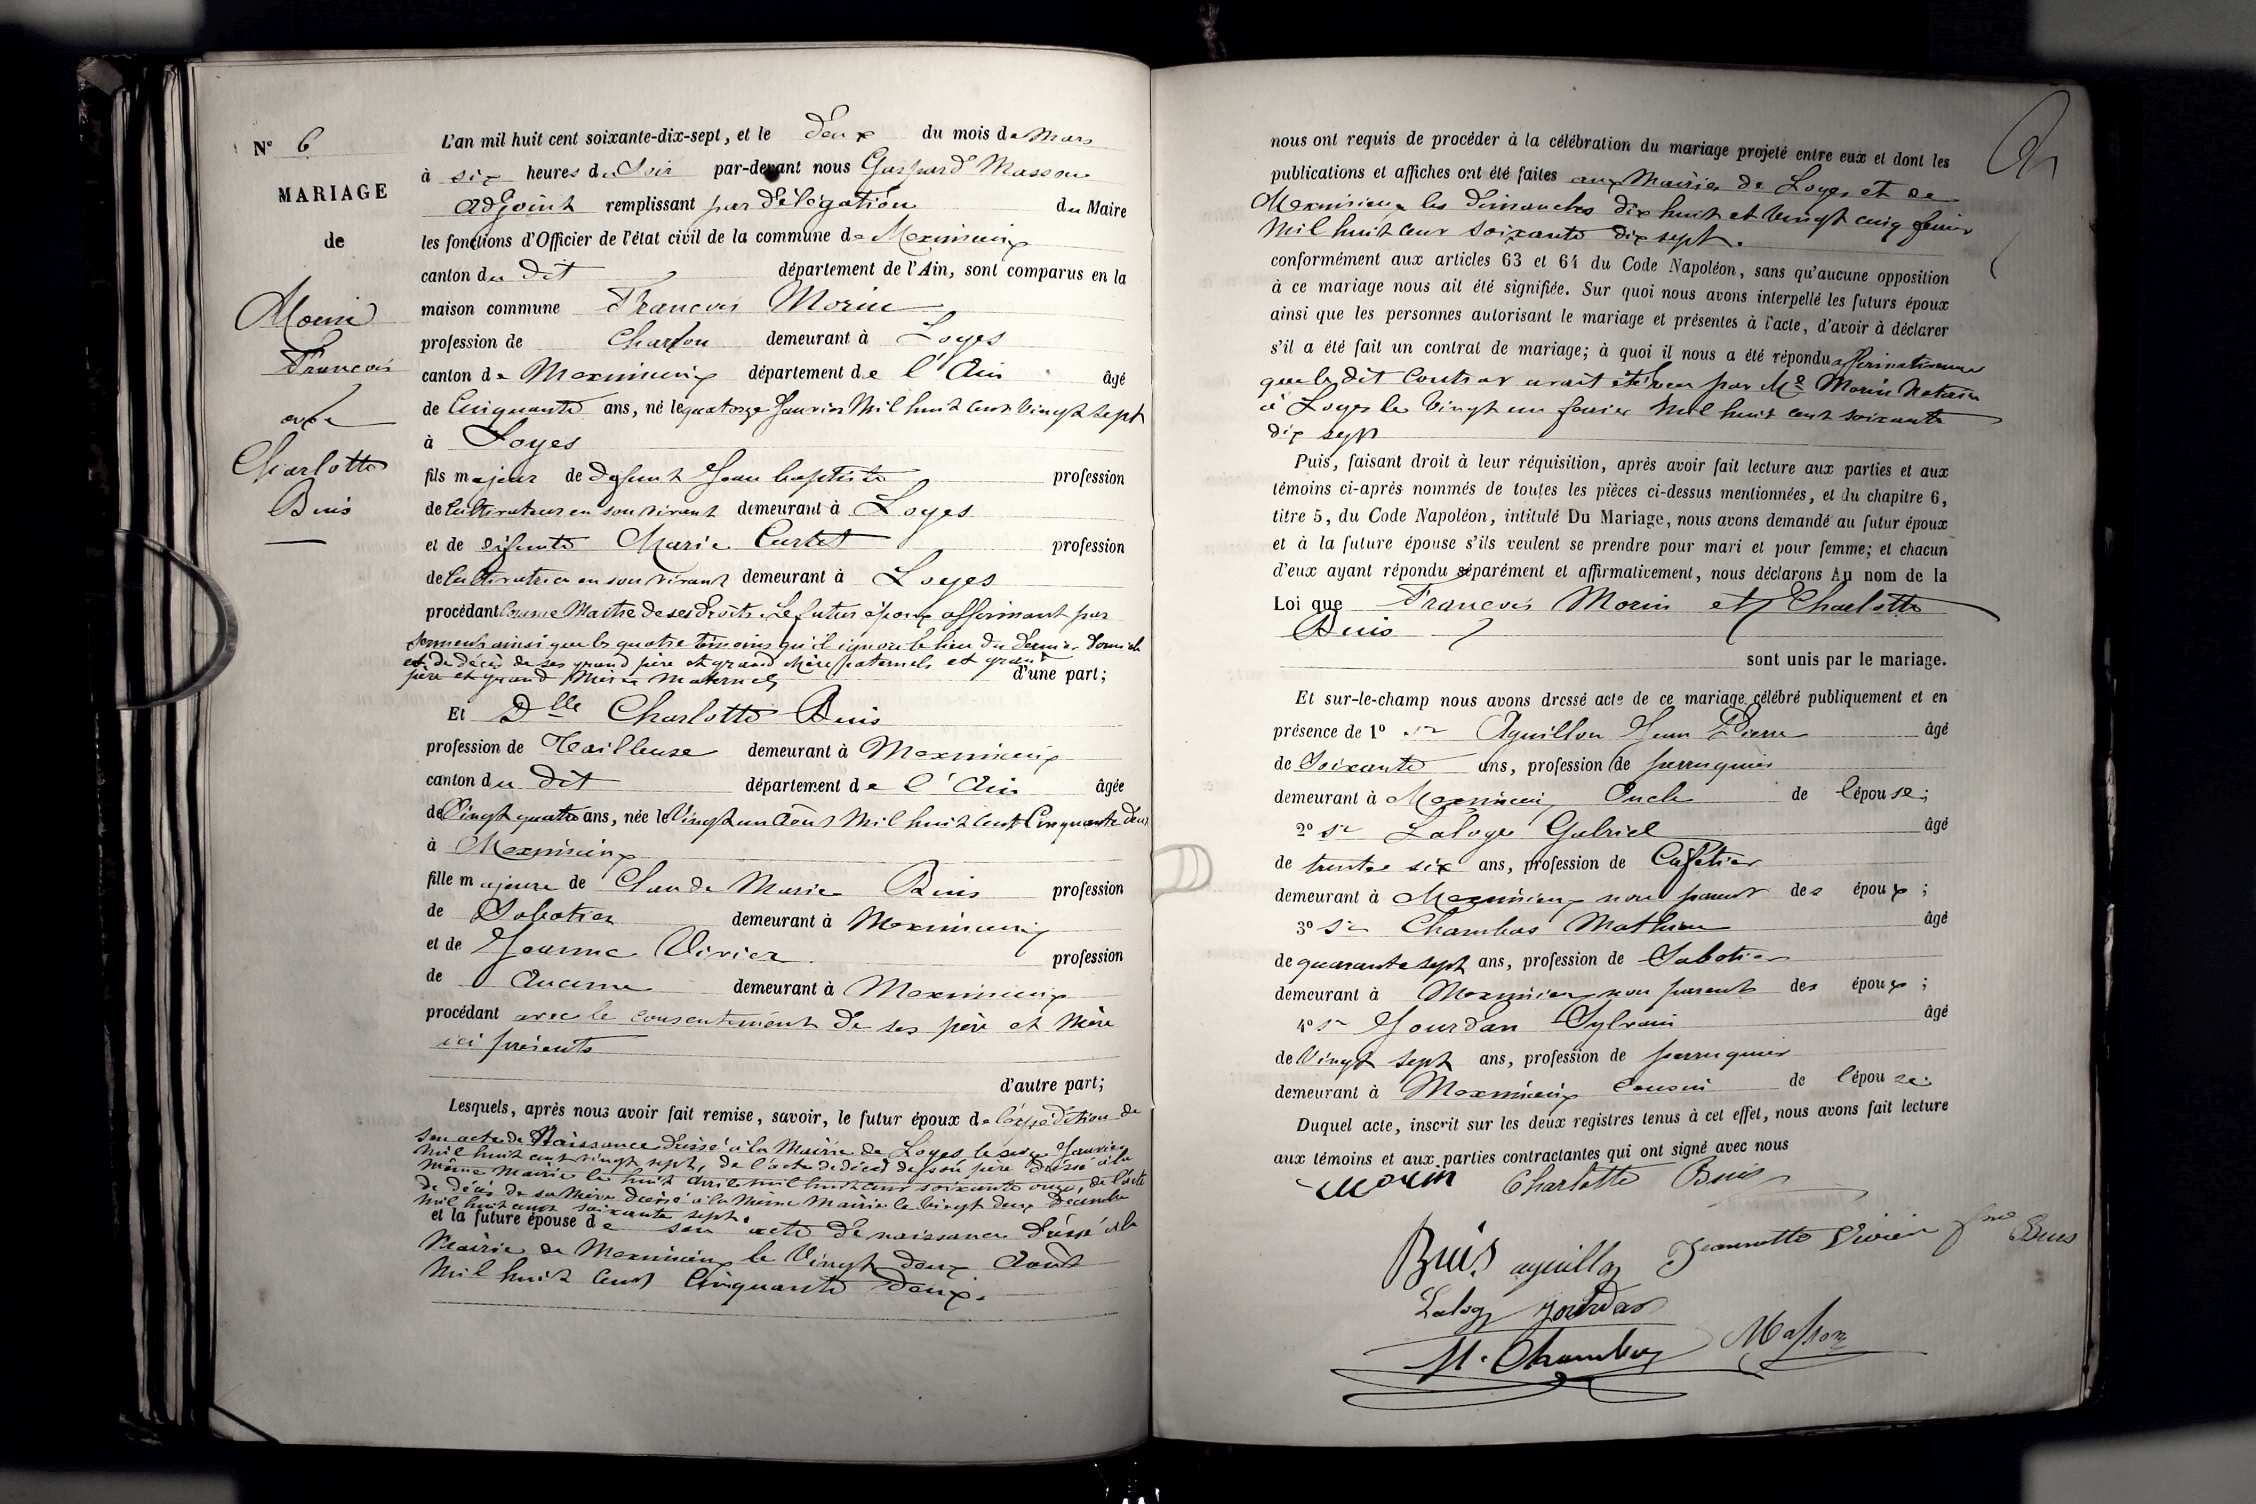 N° 6
MARIAGE
de
Morin
François
avec
Charlotte
Buis
L'an mil huit cent soixante-dix-sept, et le deux du mois de Mars
à six heures du Soir par-devant nous Gaspard Masson
adjoint remplissant par délégation du Maire
les fonctions d'Officier de l'état civil de la commune de Meximieux
canton du dit département de l'Ain, sont comparus en la
maison commune François Morin
profession de Charron demeurant à Loyes
canton de Meximieux département de l'Ain âgé
de Cinquante ans, né le quatorze Janvier Mil huit cent vingt sept
à Loyes
fils majeur de défunt Jean baptiste profession
de Cultivateur en son vivant demeurant à Loyes
et de défunte Marie Curtet profession
de Cultivatrice en son vivant demeurant à Loyes
procédant Comme Maitre de ses droits. Le futur époux affirmant par
serment ainsi que les quatre témoins qu'il ignore le lieu du dernier domicile
et de décès de ses grand père et grand Mère paternels et grand
père et grand Mère Maternels d'une part;
Et Dlle Charlotte Buis
profession de Tailleuse demeurant à Meximieux
canton du dit département de l'Ain âgée
de Vingt quatre ans, née le Vingt un Aout Mil huit cent Cinquante deux
à Meximieux
fille majeure de Claude Marie Buis profession
de Sabotier demeurant à Meximieux
et de Jeanne Vivier profession
de Aucune demeurant à Meximieux
procédant avec le consentement de ses père et Mère
ici présents
d'autre part;
Lesquels, après nous avoir fait remise, savoir, le futur époux de l'expédition de
son acte de Naissance dressé à la Mairie de Loyes le seize Janvier
mil huit cent vingt sept, de l'acte de décès de son père dressé à la
même Mairie le huit avril mil huit cent soixante onze, de l'acte
de décès de sa Mère dressé à la Même Mairie le vingt deux Décembre
mil huit cent soixante sept.
et la future épouse de son acte de naissance dressé à la
Mairie de Meximieux le Vingt deux Aout
Mil huit Cent Cinquante deux.
nous ont requis de procéder à la célébration du mariage projeté entre eux et dont les
publications et affiches ont été faites aux Mairies de Loyes et de
Meximieux les dimanches dix huit et vingt cinq fevrier
Mil huit cent soixante dix sept.
conformément aux articles 63 et 64 du Code Napoléon, sans qu'aucune opposition
à ce mariage nous ait été signifiée. Sur quoi nous avons interpellé les futurs époux
ainsi que les personnes autorisant le mariage et présentes à l'acte, d'avoir à déclarer
s'il a été fait un contrat de mariage; à quoi il nous a été répondu affirmativement
que le dit Contrat avait été reçu par Me Morin Notaire
à Loyes le Vingt un fevrier Mil huit cent soixante
dix sept
Puis, faisant droit à leur réquisition, après avoir fait lecture aux parties et aux
témoins ci-après nommés de toutes les pièces ci-dessus mentionnées, et du chapitre 6,
titre 5, du Code Napoléon, intitulé Du Mariage, nous avons demandé au futur époux
et à la future épouse s'ils veulent se prendre pour mari et pour femme; et chacun
d'eux ayant répondu séparément et affirmativement, nous déclarons Au nom de la
Loi que François Morin et Charlotte
Buis
sont unis par le mariage.
Et sur-le-champ nous avons dressé acte de ce mariage célébré publiquement et en
présence de 1° Sr Aguillon Jean Pierre âgé
de Soixante ans, profession de perruquier
demeurant à Meximieux Oncle de l'épouse;
2° Sr Laloge Gabriel âgé
de trente six ans, profession de Cafetier
demeurant à Meximieux non parent des époux;
3° Sr Chambas Mathieu âgé
de quarante sept ans, profession de Sabotier
demeurant à Meximieux non parent des époux;
4° Sr Jourdan Sylvain âgé
de Vingt sept ans, profession de perruquier
demeurant à Meximieux Cousin de l'épouse.
Duquel acte, inscrit sur les deux registres tenus à cet effet, nous avons fait lecture
aux témoins et aux parties contractantes qui ont signé avec nous
Morin Charlotte Buis
Buis aguillon Jeannette Vivier fme Buis
Laloge Jourdan
M. Chambas Masson